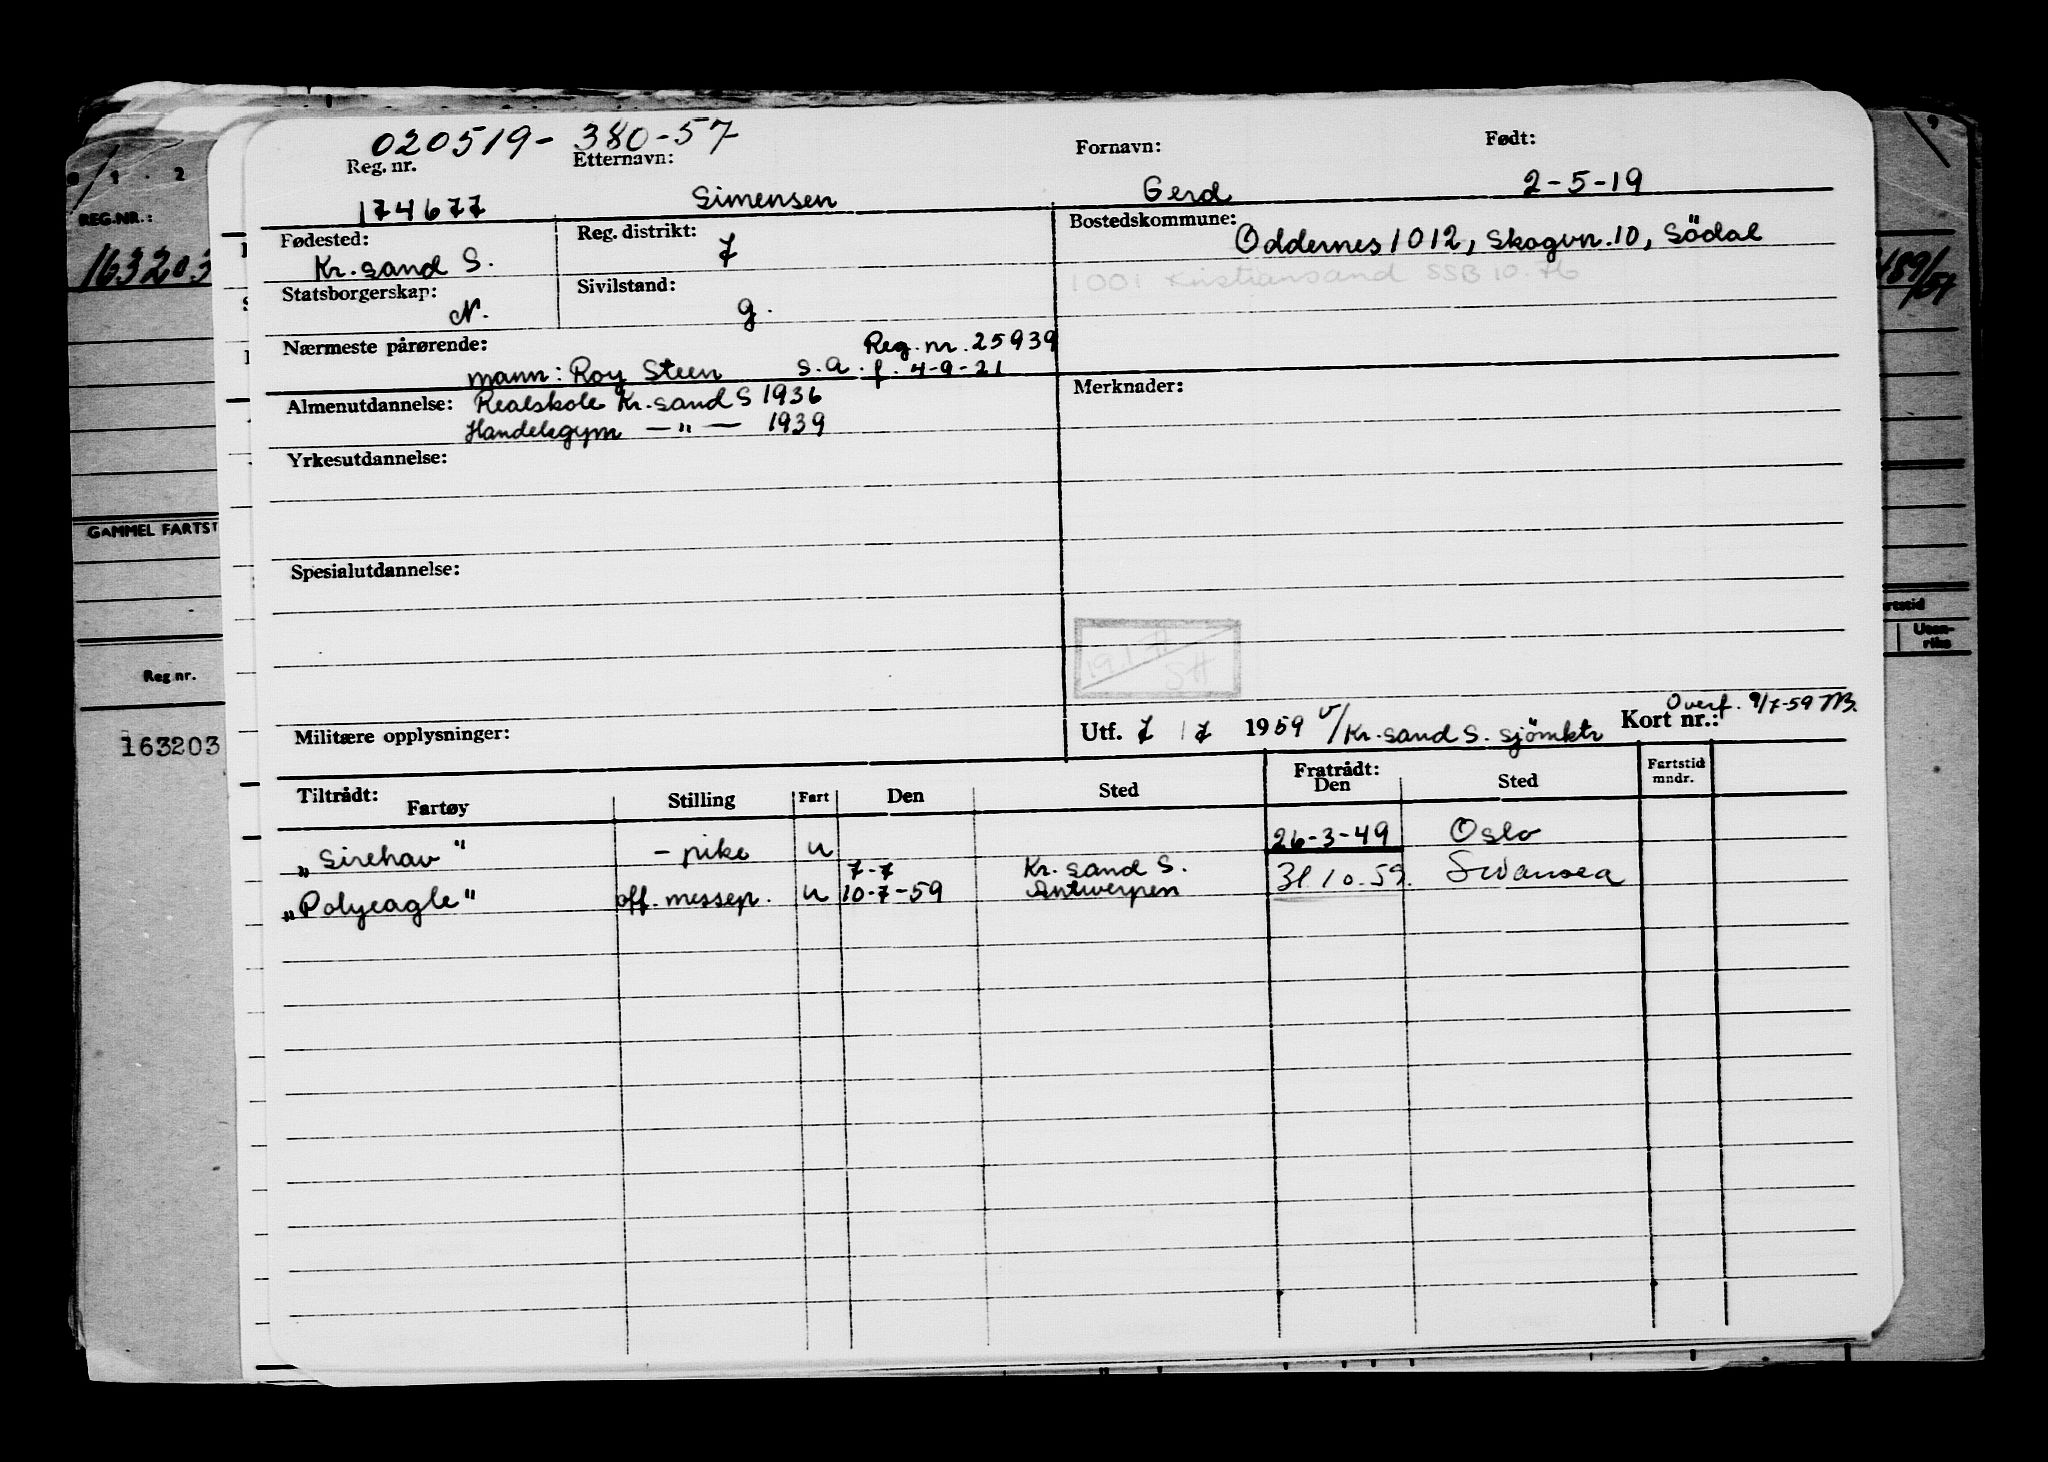 020519- 380-57
Reg. nr. Etternavn: Fornavn: Født:
174677 Simensen Gerd 2-5-19
Fødested: Reg. distrikt: Bostedskommune:
Kr. sand S. 7 Oddernes 1012, Skogvn. 10, Södal
1001 Kristiansand SSB 10.76
Statsborgerskap: Sivilstand:
N. g.
Nærmeste pårørende: Reg. nr. 25939
mann: Roy Steen s.a. f. 4-9-21
Almenutdannelse: Realskole Kr. sand S 1936
Handelsgym — " — 1939
Merknader:
Yrkesutdannelse:
Spesialutdannelse:
SH
Militære opplysninger:
Overf. 9/7-59 MB.
Utf. 7 / 7 1959 v/Kr. sand S. sjömktr Kort nr.:
Tiltrådt: Fratrådt: Fartstid
Fartøy Stilling Fart Den Sted Den Sted mndr.
„Sirehav" - pike u 26-3-49 Oslo
7-7 Kr. sand S.
„Polyeagle" off. messep. u 10-7-59 Antwerpen 31.10.59. Swansea
1 . 2
REG.NR.:
163203
GAMMEL FARTST
Reg.nr.
163203
489/57
rtstid
Uten-
riks